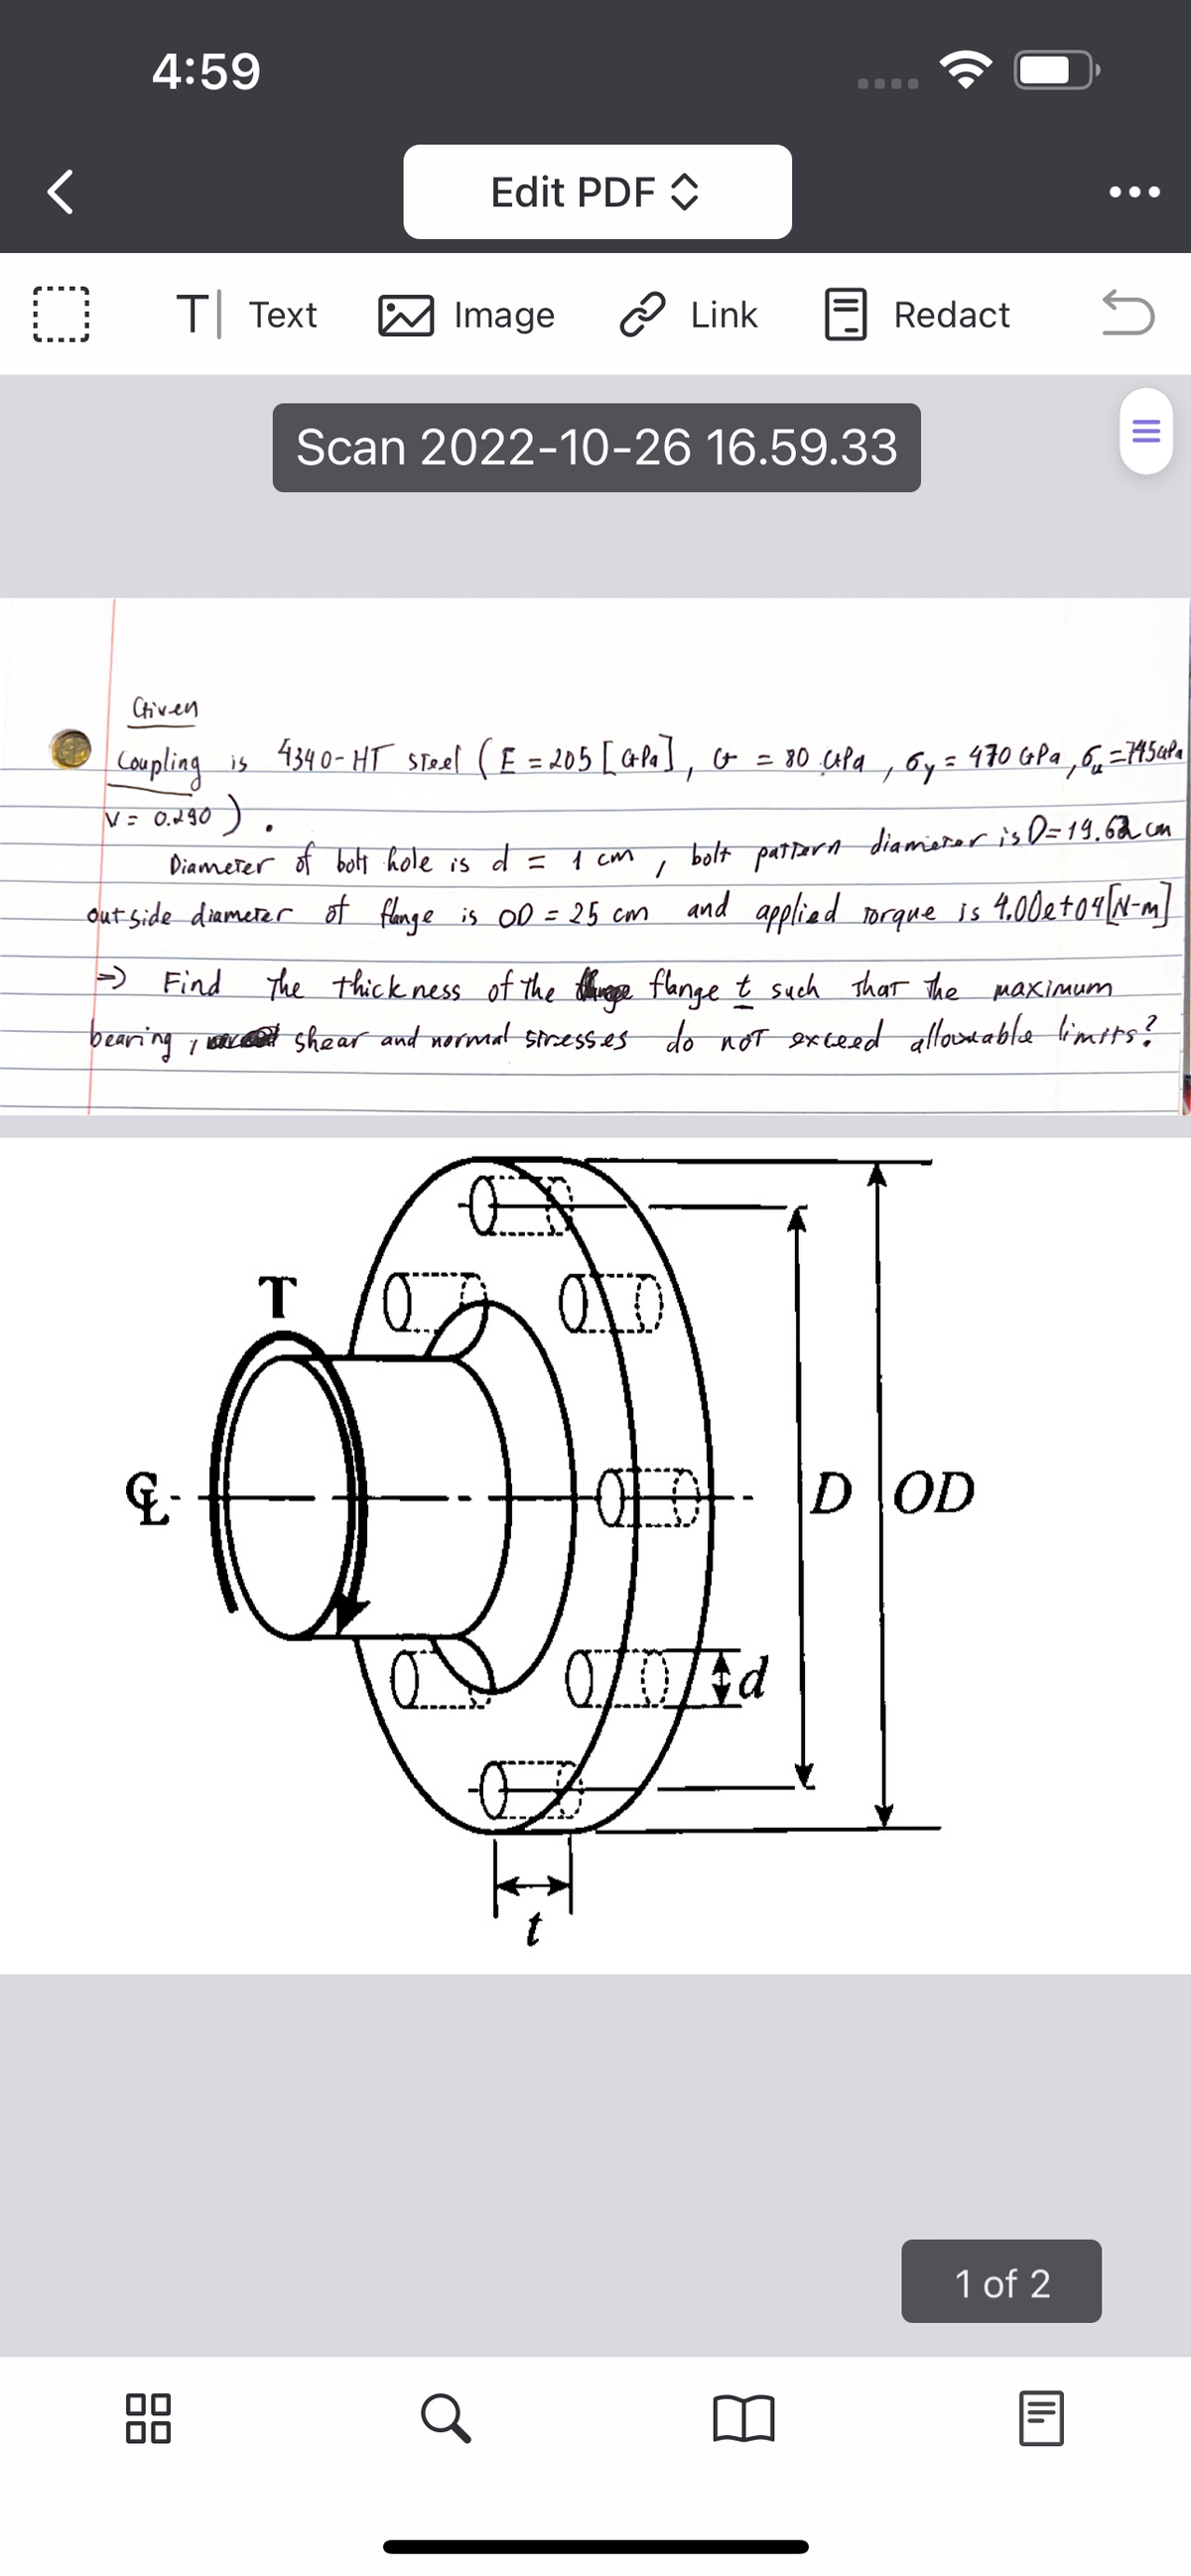 4:59
Edit PDF
Text Image Link Redact
Scan 2022-10-26 16.59.33
Given
Coupling is 4340-HT steel ( E = 205 [GPa] , G = 80 GPa , σy = 470 GPa , σu = 745 GPa
ν = 0.290 ) .
Diameter of bolt hole is d = 1 cm , bolt pattern diameter is D = 19.62 cm
outside diameter of flange is OD = 25 cm and applied torque is 4.00e+04 [N-m]
⇒ Find the thickness of the flange t such that the maximum
bearing , shear and normal stresses do not exceed allowable limits?
T
℄
D OD
d
t
1 of 2